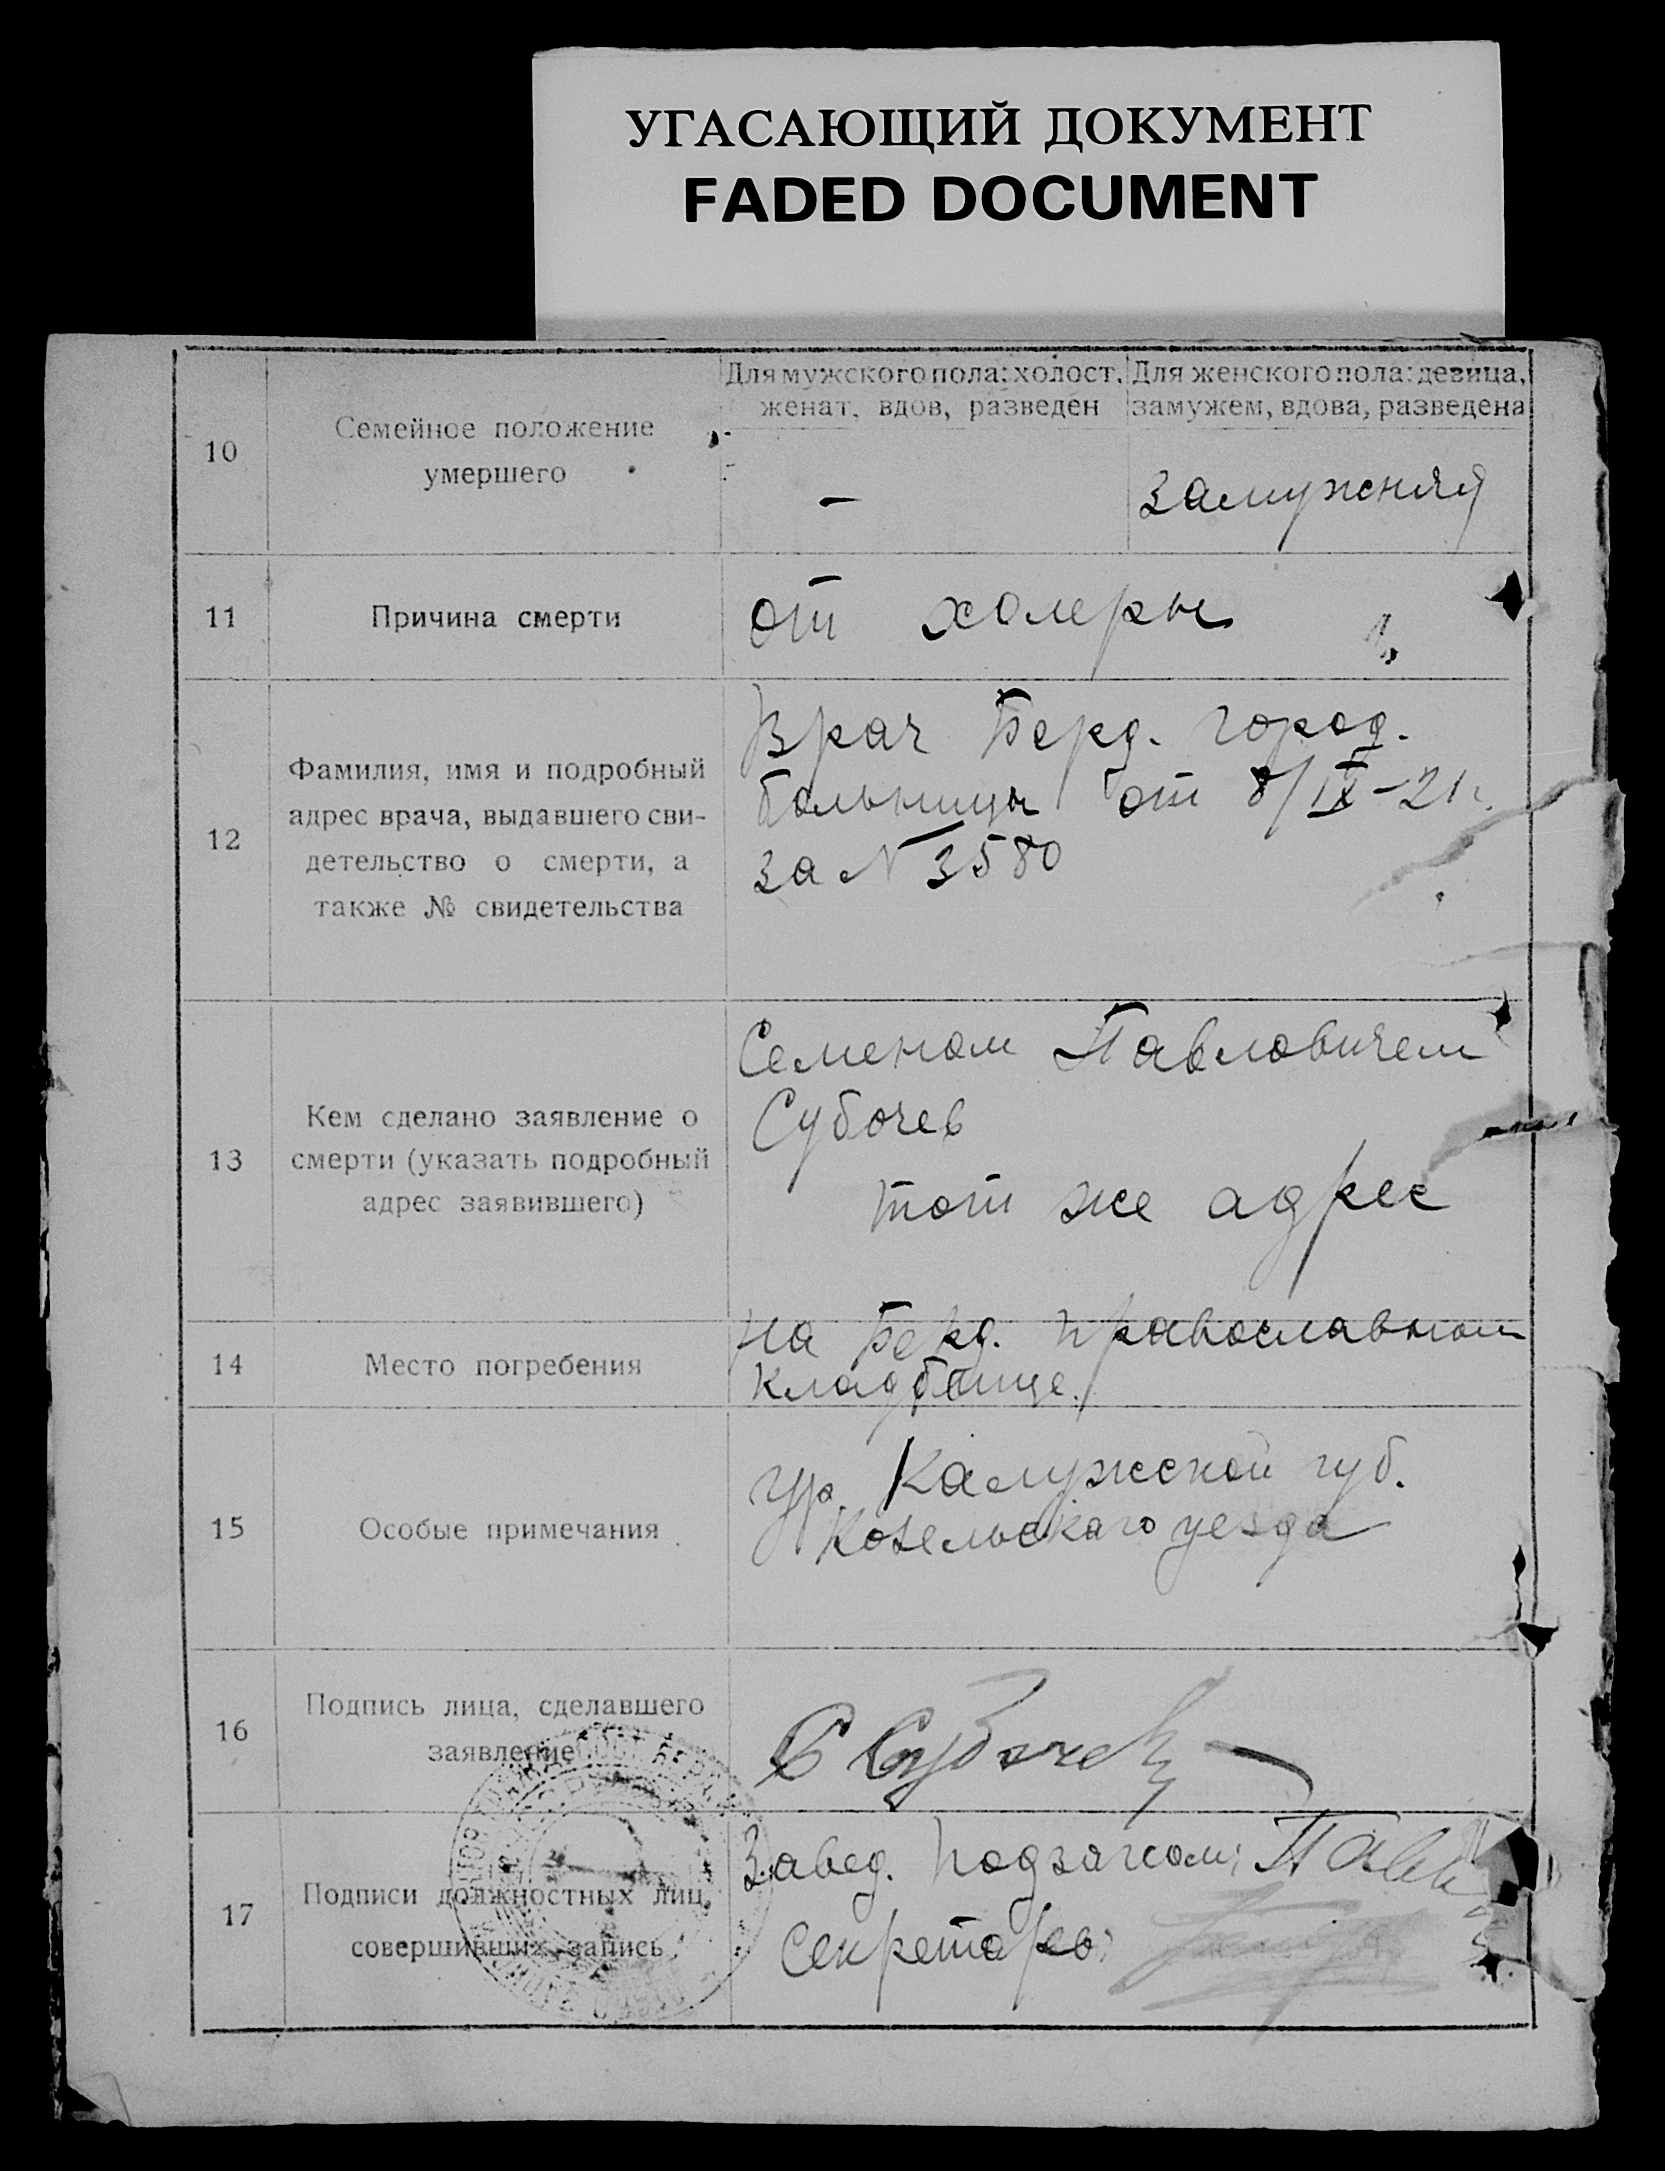 УГАСАЮЩИЙ ДОКУМЕНТ
FADED DOCUMENT
10
Семейное положение
умершего
Для мужского пола: холост,
женат, вдов, разведен
—
Для женского пола: девица,
замужем, вдова, разведена
замужняя
11
Причина смерти
от холеры
12
Фамилия, имя и подробный
адрес врача, выдавшего сви-
детельство о смерти, а
также № свидетельства
Врач Берд. город.
больницы от 8/IX-21г.
за N 3580
13
Кем сделано заявление о
смерти (указать подробный
адрес заявившего)
Семеном Павловичем
Субочев
тот же адрес
14
Место погребения
на Берд. православном
кладбище.
15
Особые примечания
гр. Калужской губ.
Козельскаго уезда
16
Подпись лица, сделавшего
заявление
С Субочев
17
Подписи должностных лиц,
совершивших запись
Завед. Подзагсом:
Секретарь: